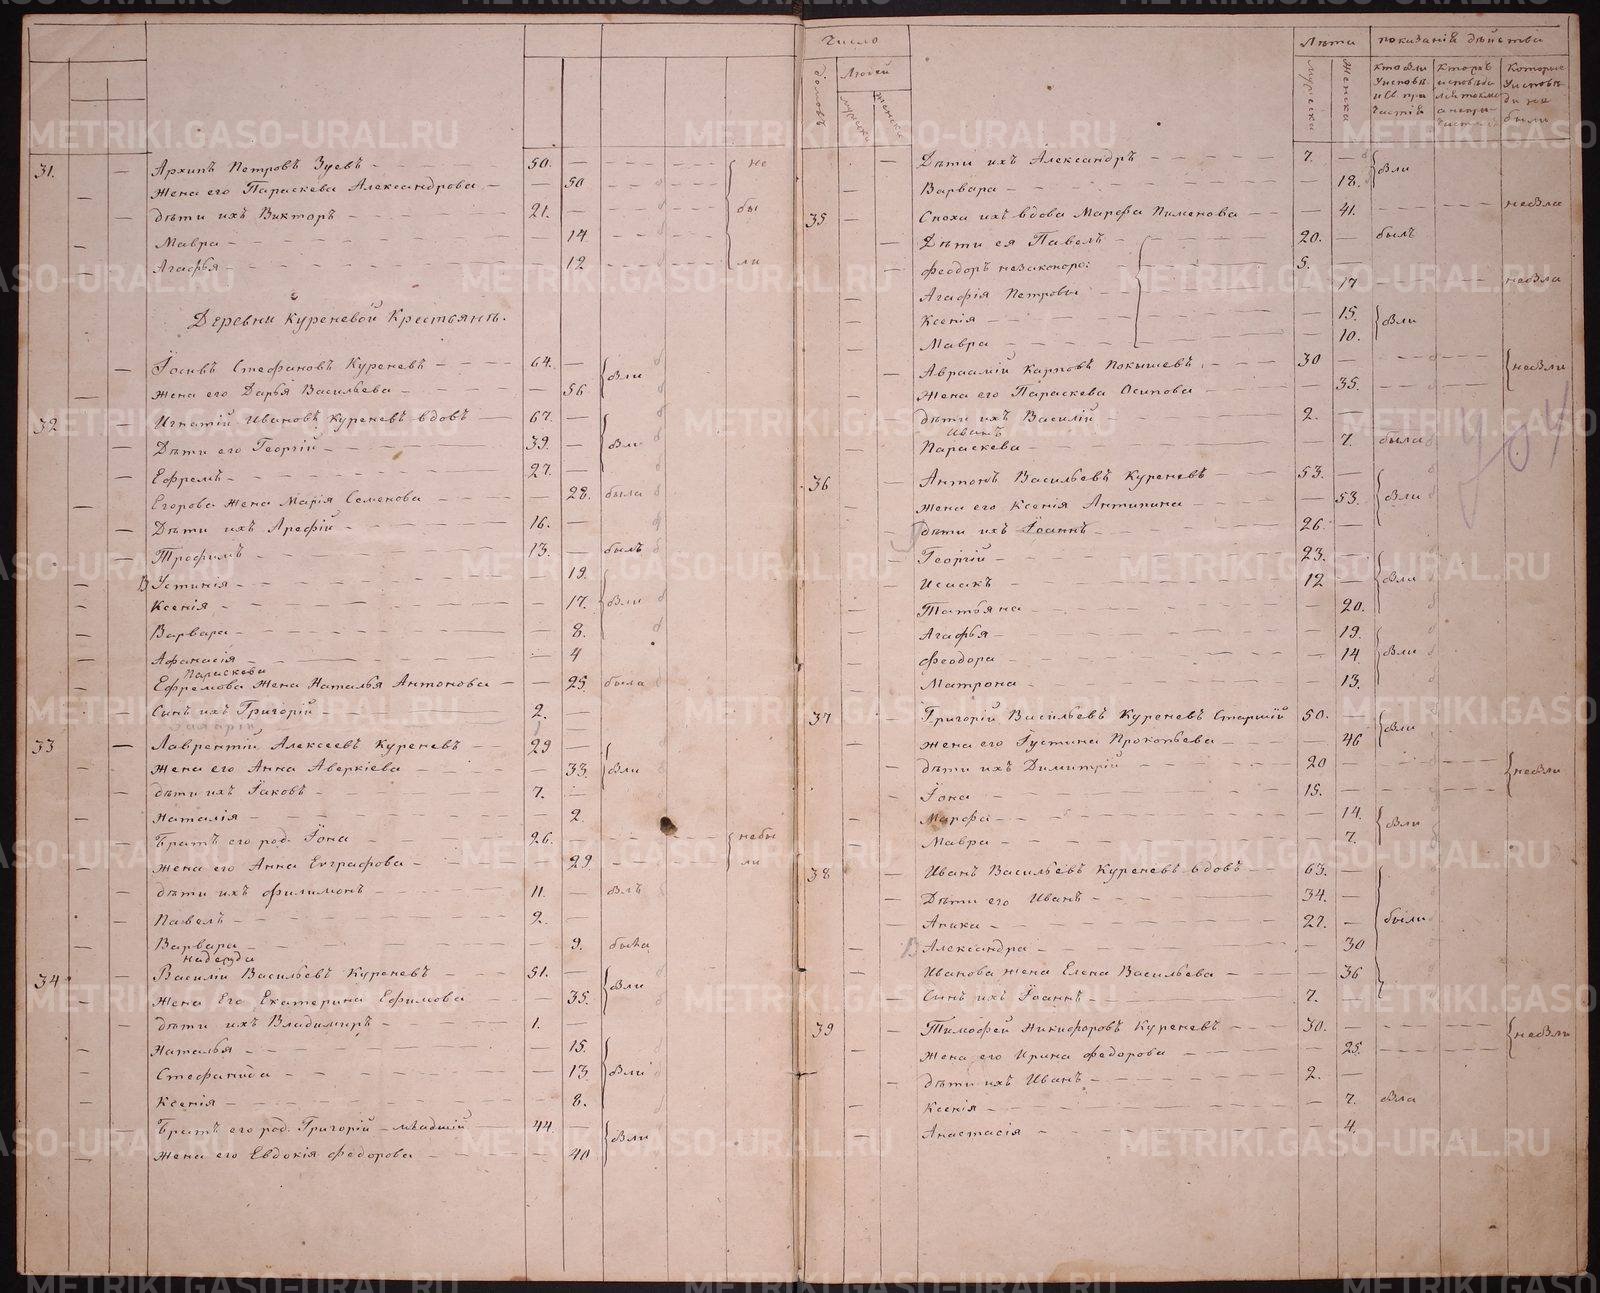 31. Архипъ Петровъ Зуевъ 50. не
Жена его Параскева Александрова 50
дѣти ихъ Викторъ 21. бы
Мавра 14
Агафья 12 ли
Деревни Куреневой Крестьянъ.
Іосивъ Стефановъ Куреневъ 64.
Жена его Дарья Васильева 56 бли
32 Игнатій Ивановъ Куреневъ вдовъ 67.
Дѣти его Георгій 39. бли
Ефремъ 27.
Егорова жена Марія Семенова 28. была
Дѣти ихъ Арефій 16.
Трофимъ 13. былъ
Устинія 19.
Ксенія 17. бли
Варвара 8.
Афанасія 4
Параскева
Ефремова Жена Наталья Антонова 25 была
Сынъ ихъ Григорій 2.
33 Лаврентій Алексеевъ Куреневъ 29
Жена его Анна Аверкіева 33. бли
дѣти ихъ Іаковъ 7.
Наталія 2.
Братъ его род. Іона 26. небы
Жена его Анна Евграфова 29 ли
дѣти ихъ филимонъ 11. блъ
Павелъ 2.
Варвара 9. была
надежда
34 Василій Васильевъ Куреневъ 51.
Жена Его Екатерина Ефимова 35. бли
дѣти ихъ Владимиръ 1.
Наталья 15.
Стефанида 13. бли
Ксенія 8.
Братъ его род. Григорій младшій 44.
Жена его Евдокія федорова 40 бли
Число Лѣта показанія дѣйства
домовъ Людей
мужеска женска мужеска Женска
кто были Которые Которые
Дѣти ихъ Александръ 7.
Варвара 18. бли
35 Сноха ихъ вдова Марфа Пименова 41. небла
Дѣти ея Павелъ 20. былъ
феодоръ незаконоро: 5.
Агафія Петровы 17 небла
Ксенія 15. бли
Мавра 10.
Авраамій Карповъ Покышевъ 30 небли
Жена его Параскева Осипова 35.
дѣти ихъ Василій 2.
Иванъ
Параскева 7. была
36 Антонъ Васильевъ Куреневъ 53.
Жена его Ксенія Антипина 53. бли
дѣти ихъ Іоаннъ 26.
Георгій 23.
Исаакъ 12 бли
Татьяна 20.
Агафья 19.
феодора 14 бли
Матрона 13.
37 Григорій Васильевъ Куреневъ Старшій 50.
Жена его Іустина Прокопьева 46 бли
дѣти ихъ Димитрій 20 небли
Іона 15.
Марфа 14. бли
Мавра 7.
38 Иванъ Васильевъ Куреневъ вдовъ 63.
Дѣти его Иванъ 34.
Аника 27. были
Александра 30
Иванова жена Елена Васильева 36
Сынъ ихъ Іоаннъ 7.
39 Тимофей Никифоровъ Куреневъ 30. небли
Жена его Ирина федорова 25.
дѣти ихъ Иванъ 2.
Ксенія 7. бла
Анастасія 4.
METRIKI.GASO-URAL.RU